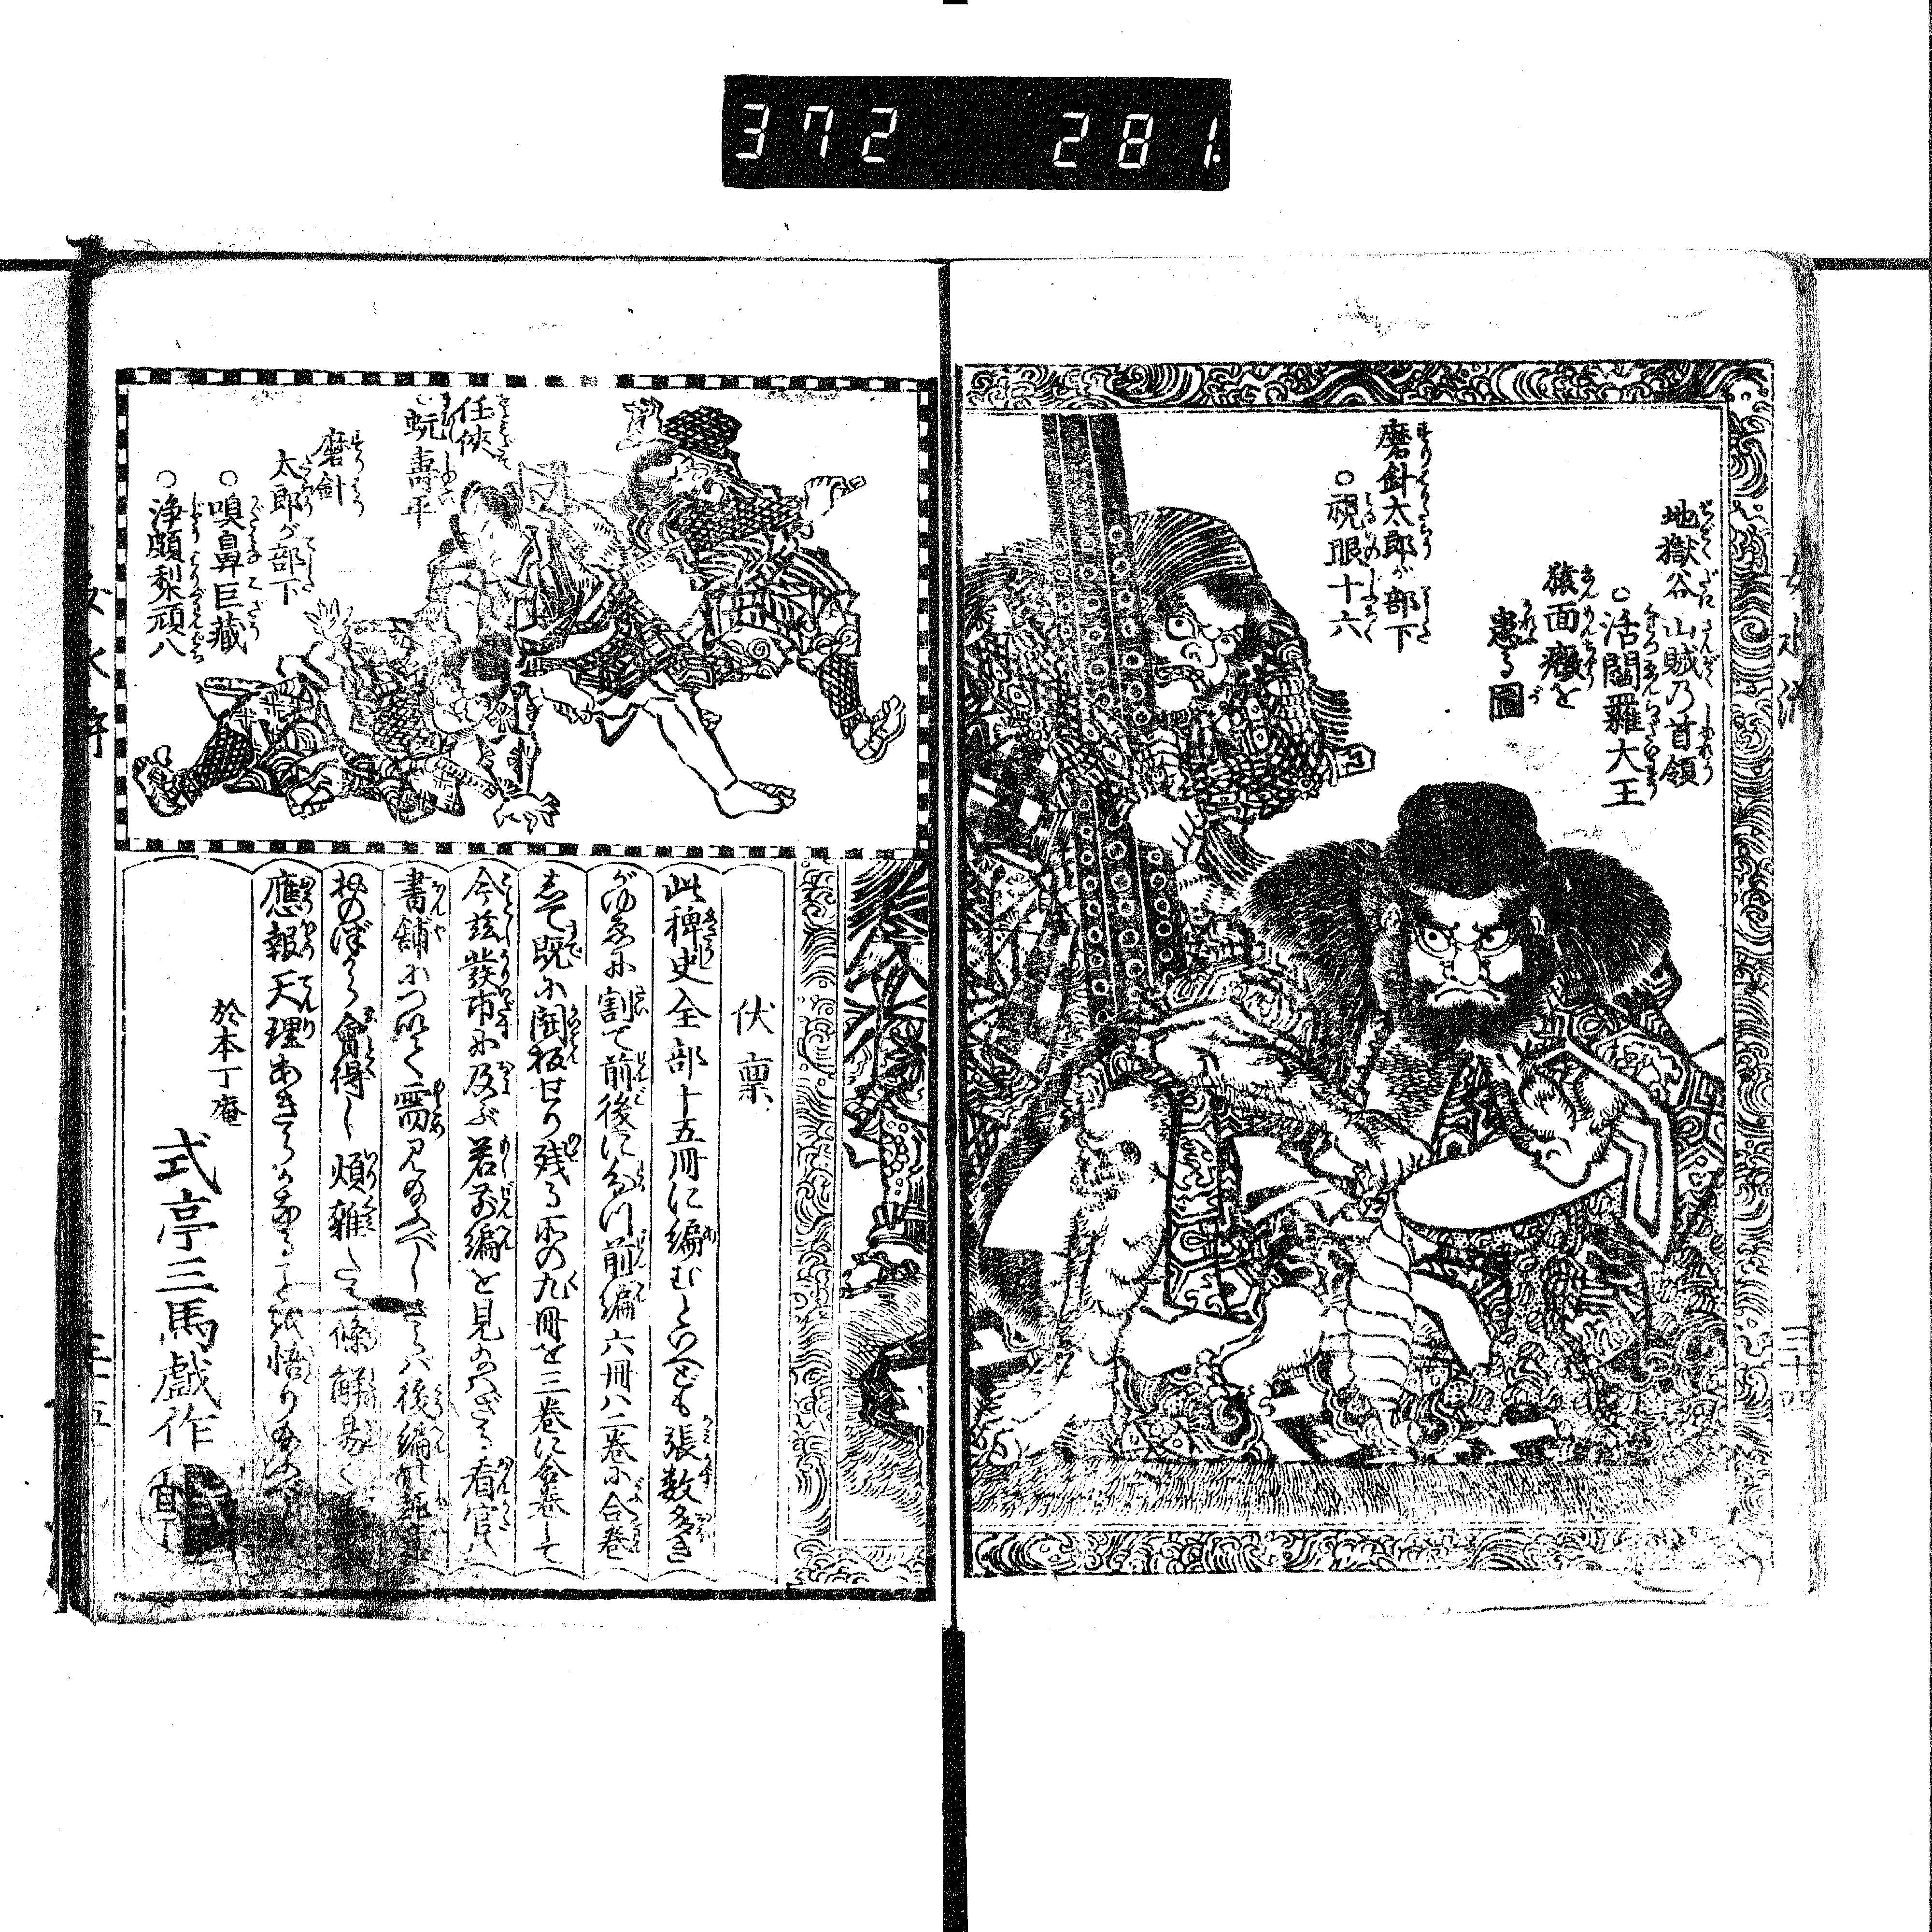 372 281
地獄谷山賊乃首領
○活閻羅大王
猿面瘢を
患る圖
磨針太郎が部下
○視眼十六
三十四
任侠
蚖壽平
磨針
太郎が部下
○嗅鼻巨藏
○浄頗梨頑八
伏禀
此稗史全部十五冊に編むといへども張数多き
がゆゑに割て前後に分つ前編六冊ハ二巻に合巻
して既に開板せり残る所の九冊を三巻に合巻して
今茲發市に及ぶ若前編を見給ハざる看官ハ
書舗につきて需見給ふべしさらバ後編の
會得し煩雑
應報天理あきらかなることを悟り給ふべし
於本丁庵
式亭三馬戯作